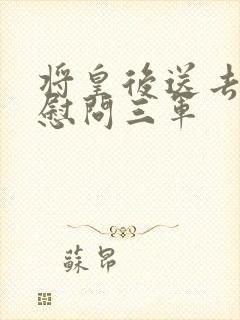 將皇後送去
慰問三軍
蘇昂